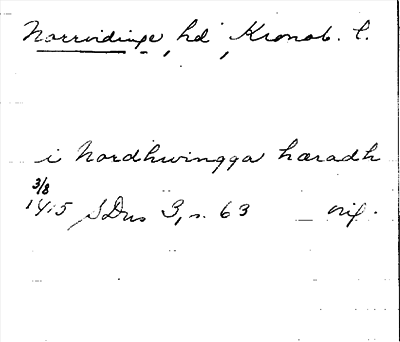 Norrvidinge hd, Kronob. l.
i Nordhwingga hæradh
3/8
1415 SDns 3, s. 63 _ orig.